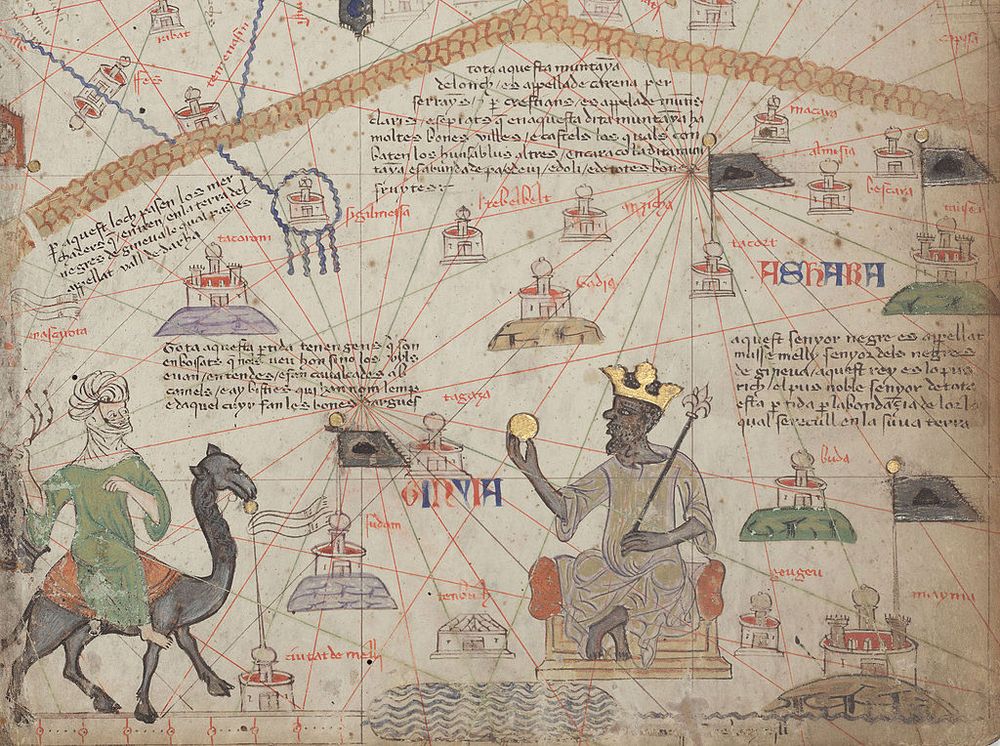 ribat
fes
tota aquesta muntaya
de lonch / es appellade carena per
serrayns / p crestians / es apelade muns
claris / e sepiats q en aquesta dita muntaya ha
moltes bones villes / e castels los quals con
baten los huns ab los altres / encara co la dita mun
taya es abunda de pa de vi / e doli / e de totes bones
fruytes:~
macara
almisia
bescara
p aquest loch pasen los mer
chaders q entren en la terra del
negres de gineua lo qual pas es
appellat vall de darha
sigilmessa
tacort
tacaroni
ASHARA
Tota aquesta ptida tenen gens q son
enbosats q nols veu hom sino los uyls
e uan / en tendes / e fan caualcades ab
camels / e ay besties qui han nom lemp
e da quel cuyr fan les bones dargues
aquest senyor negre es appellat
musse melly senyor dels negres
de gineua / aquest rey es lo pus
rich / el pus noble senyor de tota
esta ptida p labondançia de lor lo
qual se recull en la suua terra
tagaza
GINVIA
buda
sudam
tenbuch
geugeu
mayma
ciutat de melli